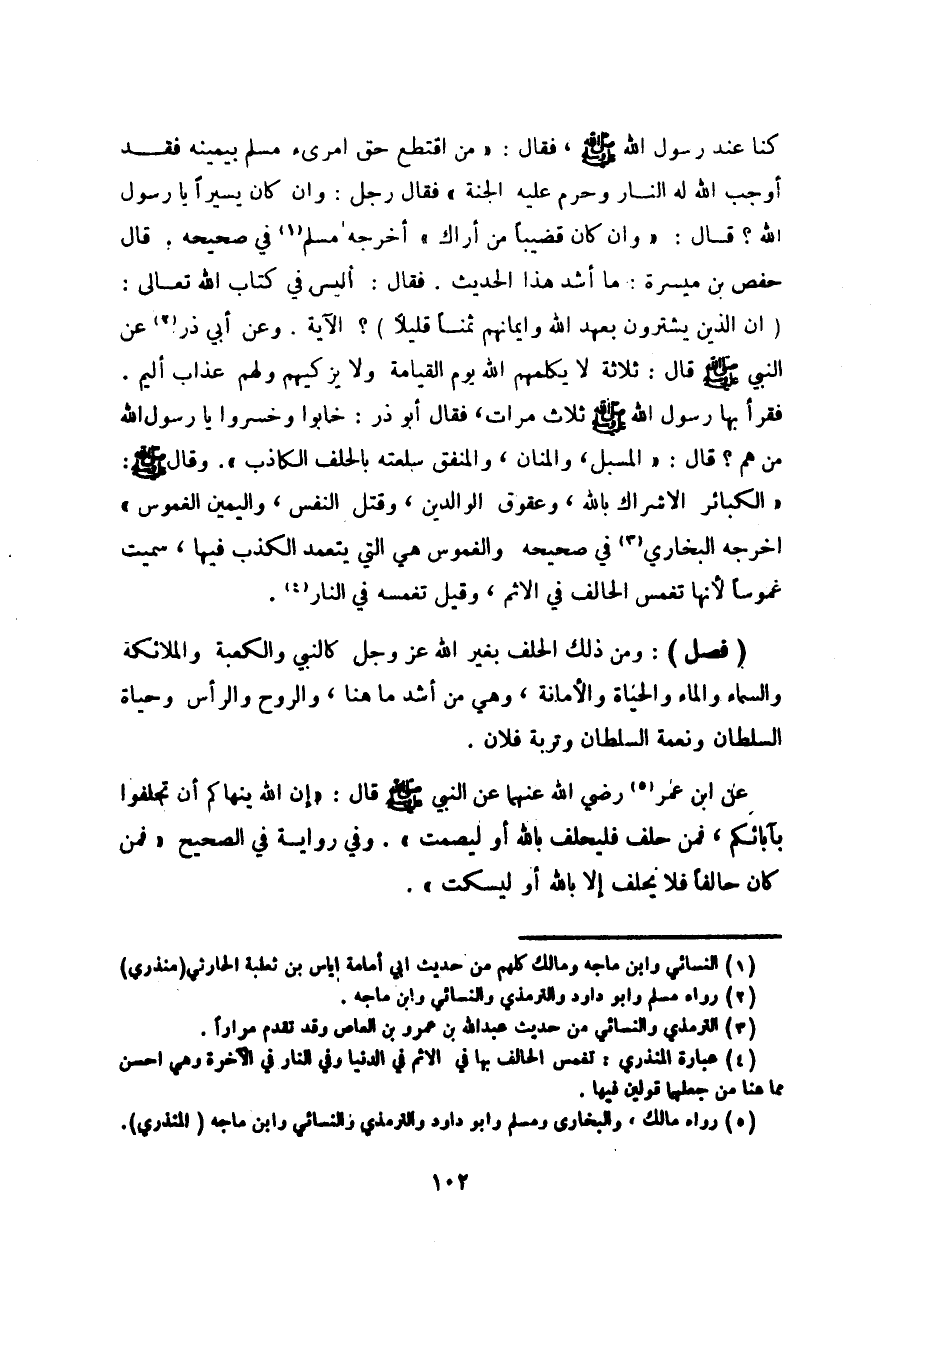 كنا عند رسول الله ﷺ ، فقال : « من اقتطع حق امرىء مسلم بيمينه فقـــد
أوجب الله له النـــار وحرم عليه الجنة » فقال رجل : وان كان يسيراً يا رسول
الله ؟ قـــال : « وان كان قضيباً من أراك » أخرجه مسلم(١) في صحيحه . قال
حفص بن ميسرة : ما أشد هذا الحديث . فقال : أليس في كتاب الله تعـالى :
( ان الذين يشترون بعهد الله وايمانهم ثمنـــاً قليلاً ) ؟ الآية . وعن أبي ذر(٢) عن
النبي ﷺ قال : ثلاثة لا يكلمهم الله يوم القيامة ولا يزكيهم ولهم عذاب أليم .
فقرأ بها رسول الله ﷺ ثلاث مرات، فقال أبو ذر : خابوا وخسروا يا رسول الله
من هم ؟ قال : « المسبل، والمنان ، والمنفق سلعته بالحلف الكاذب ». وقال ﷺ :
« الكبائر الاشراك بالله ، وعقوق الوالدين ، وقتل النفس ، واليمين الغموس »
اخرجه البخاري(٣) في صحيحه والغموس هي التي يتعمد الكذب فيها ، سميت
غموساً لأنها تغمس الحالف في الاثم ، وقيل تغمسه في النار(٤) .
( فصل ) : ومن ذلك الحلف بغير الله عز وجل كالنبي والكعبة والملائكة
والسماء والماء والحياة والأمانة ، وهي من أشد ما هنا ، والروح والرأس وحياة
السلطان ونعمة السلطان وتربة فلان .
عن ابن عمر(٥) رضي الله عنهما عن النبي ﷺ قال : «إن الله ينهاكم أن تحلفوا
بآبائكم ، فمن حلف فليحلف بالله أو ليصمت » . وفي روايـــة في الصحيح « فمن
كان حالفاً فلا يحلف إلا بالله أو ليسكت » .
(١) النسائي وابن ماجه ومالك كلهم من حديث ابي أمامة إياس بن ثعلبة الحارثي(منذري)
(٢) رواه مسلم وابو داود والترمذي والنسائي وابن ماجه .
(٣) الترمذي والنسائي من حديث عبدالله بن عمرو بن العاص وقد تقدم مراراً .
(٤) عبارة المنذري : تغمس الحالف بها في الاثم في الدنيا وفي النار في الآخرة وهي احسن
مما هنا من جعلها قولين فيها .
(٥) رواه مالك ، والبخارى ومسلم وابو داود والترمذي والنسائي وابن ماجه ( المنذري).
١٠٢